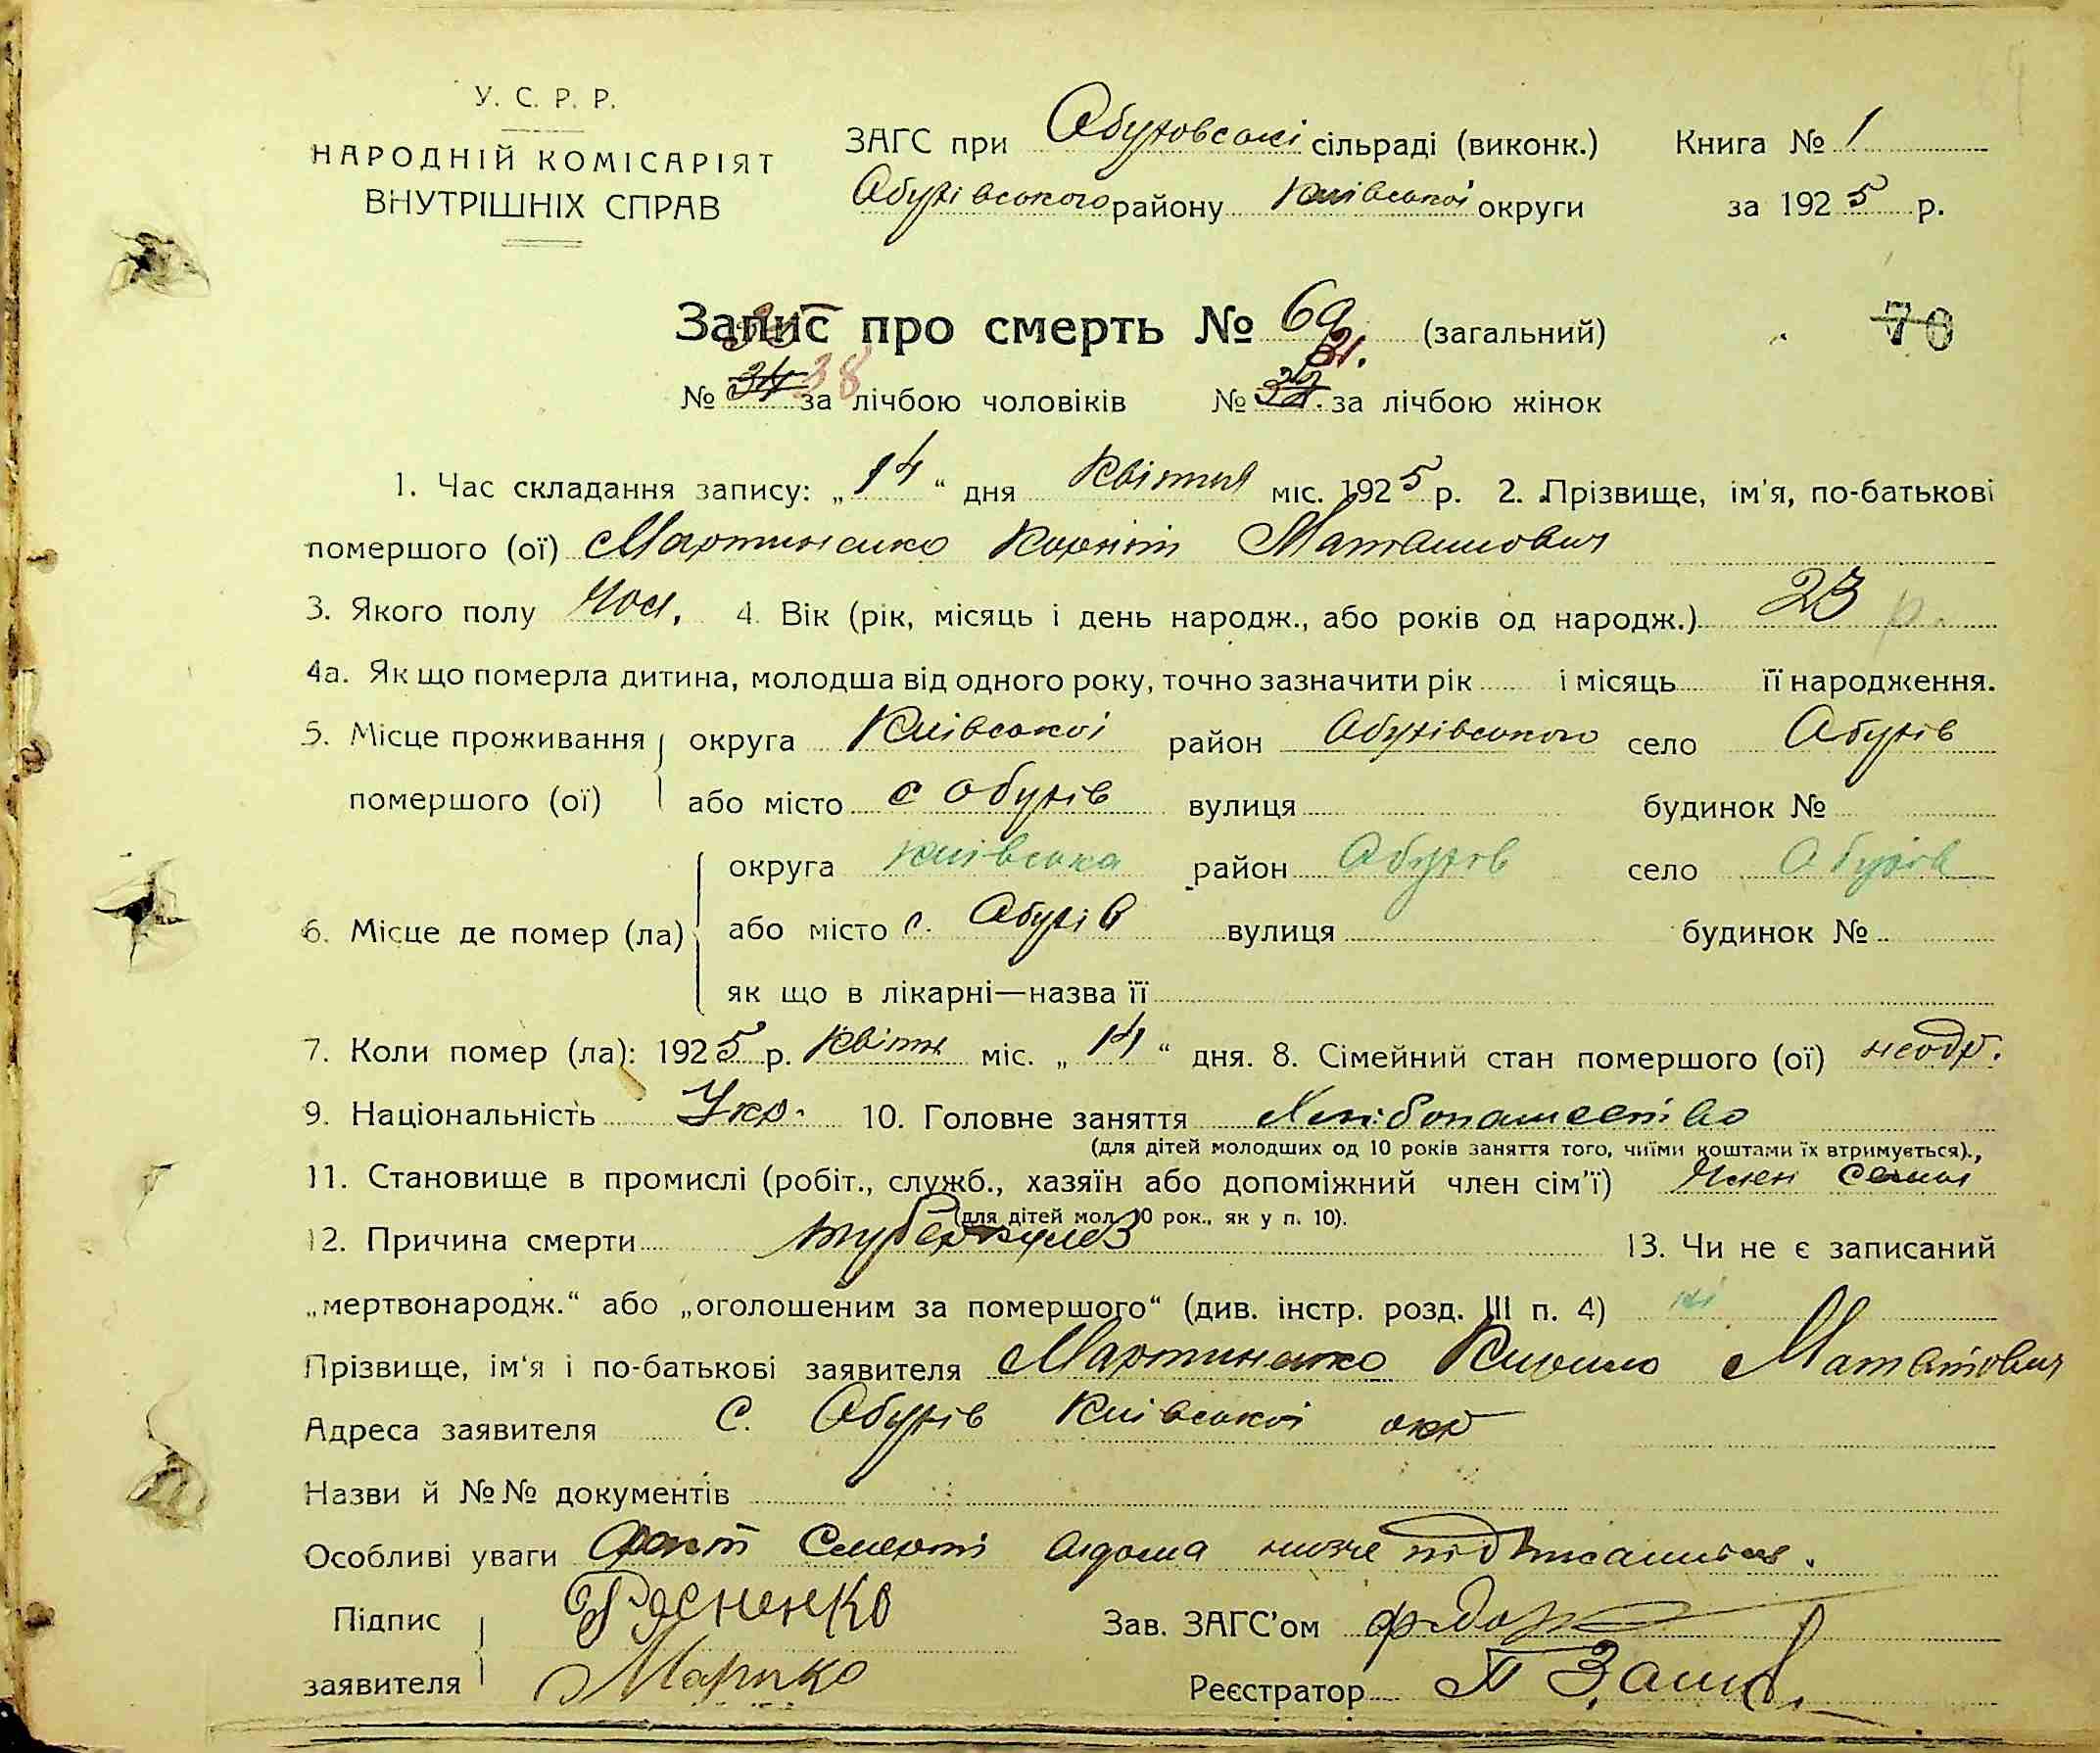 У. С. Р. Р.
НАРОДНІЙ КОМІСАРІЯТ
ВНУТРІШНІХ СПРАВ
ЗАГС при Обуховські сільраді (виконк.) Книга № 1
Обухівського району Київської округи за 1925 р.
Запис про смерть № 69 (загальний) 70
№ 34 38 за лічбою чоловіків № 32 31. за лічбою жінок
1. Час складання запису: „14“ дня Квітня міс. 1925 р. 2. Прізвище, ім'я, по-батькові
помершого (ої) Мартиненко Корніт
3. Якого полу Чол. 4. Вік (рік, місяць і день народж., або років од народж.) 23 р.
4а. Як що померла дитина, молодша від одного року, точно зазначити рік і місяць її народження.
5. Місце проживання округа Київської район Обухівського село Обухів
помершого (ої) або місто с Обухів вулиця будинок №
округа Київська район Обухов село Обухів
6. Місце де помер (ла) або місто с. Обухів вулиця будинок №
як що в лікарні—назва її
7. Коли помер (ла): 1925 р. Квітн міс. „14“ дня. 8. Сімейний стан помершого (ої) неодр.
9. Національність Укр. 10. Головне заняття Хлібопашество
(для дітей молодших од 10 років заняття того, чиїми коштами їх втримується).,
11. Становище в промислі (робіт., служб., хазяїн або допоміжний член сім'ї) Член семьи
(для дітей мол. 10 рок., як у п. 10).
12. Причина смерти туберкулез 13. Чи не є записаний
„мертвонародж.“ або „оголошеним за помершого“ (див. інстр. розд. III п. 4) ні
Прізвище, ім'я і по-батькові заявителя Мартиненко Кирило
Адреса заявителя с. Обухів Київської окр
Назви й №№ документів
Особливі уваги Факт смерті відома ниже підписаним.
Підпис
заявителя Марико
Зав. ЗАГС'ом
Реєстратор П